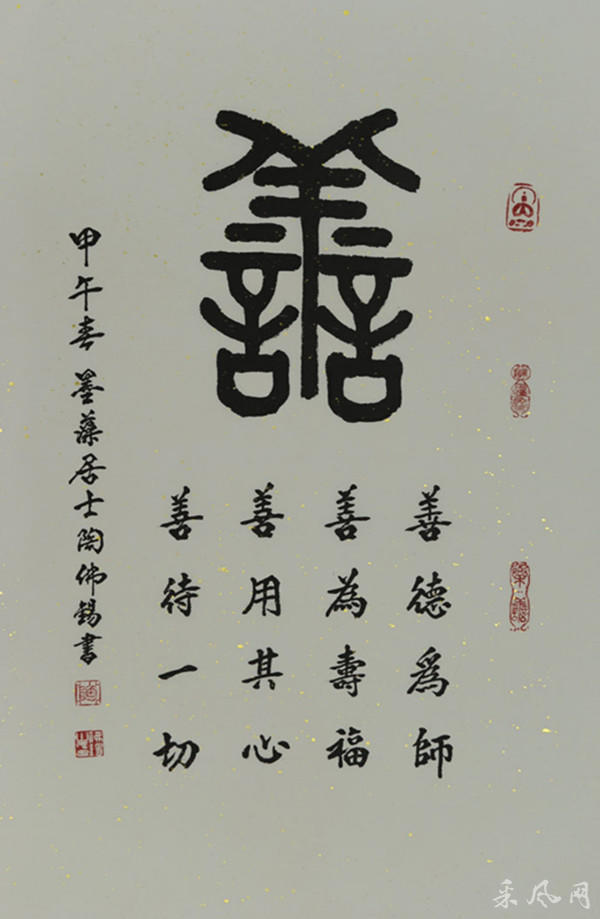 善
善德爲師
善為壽福
善用其心
善待一切
甲午春墨藻居士陶佛錫書
采风网